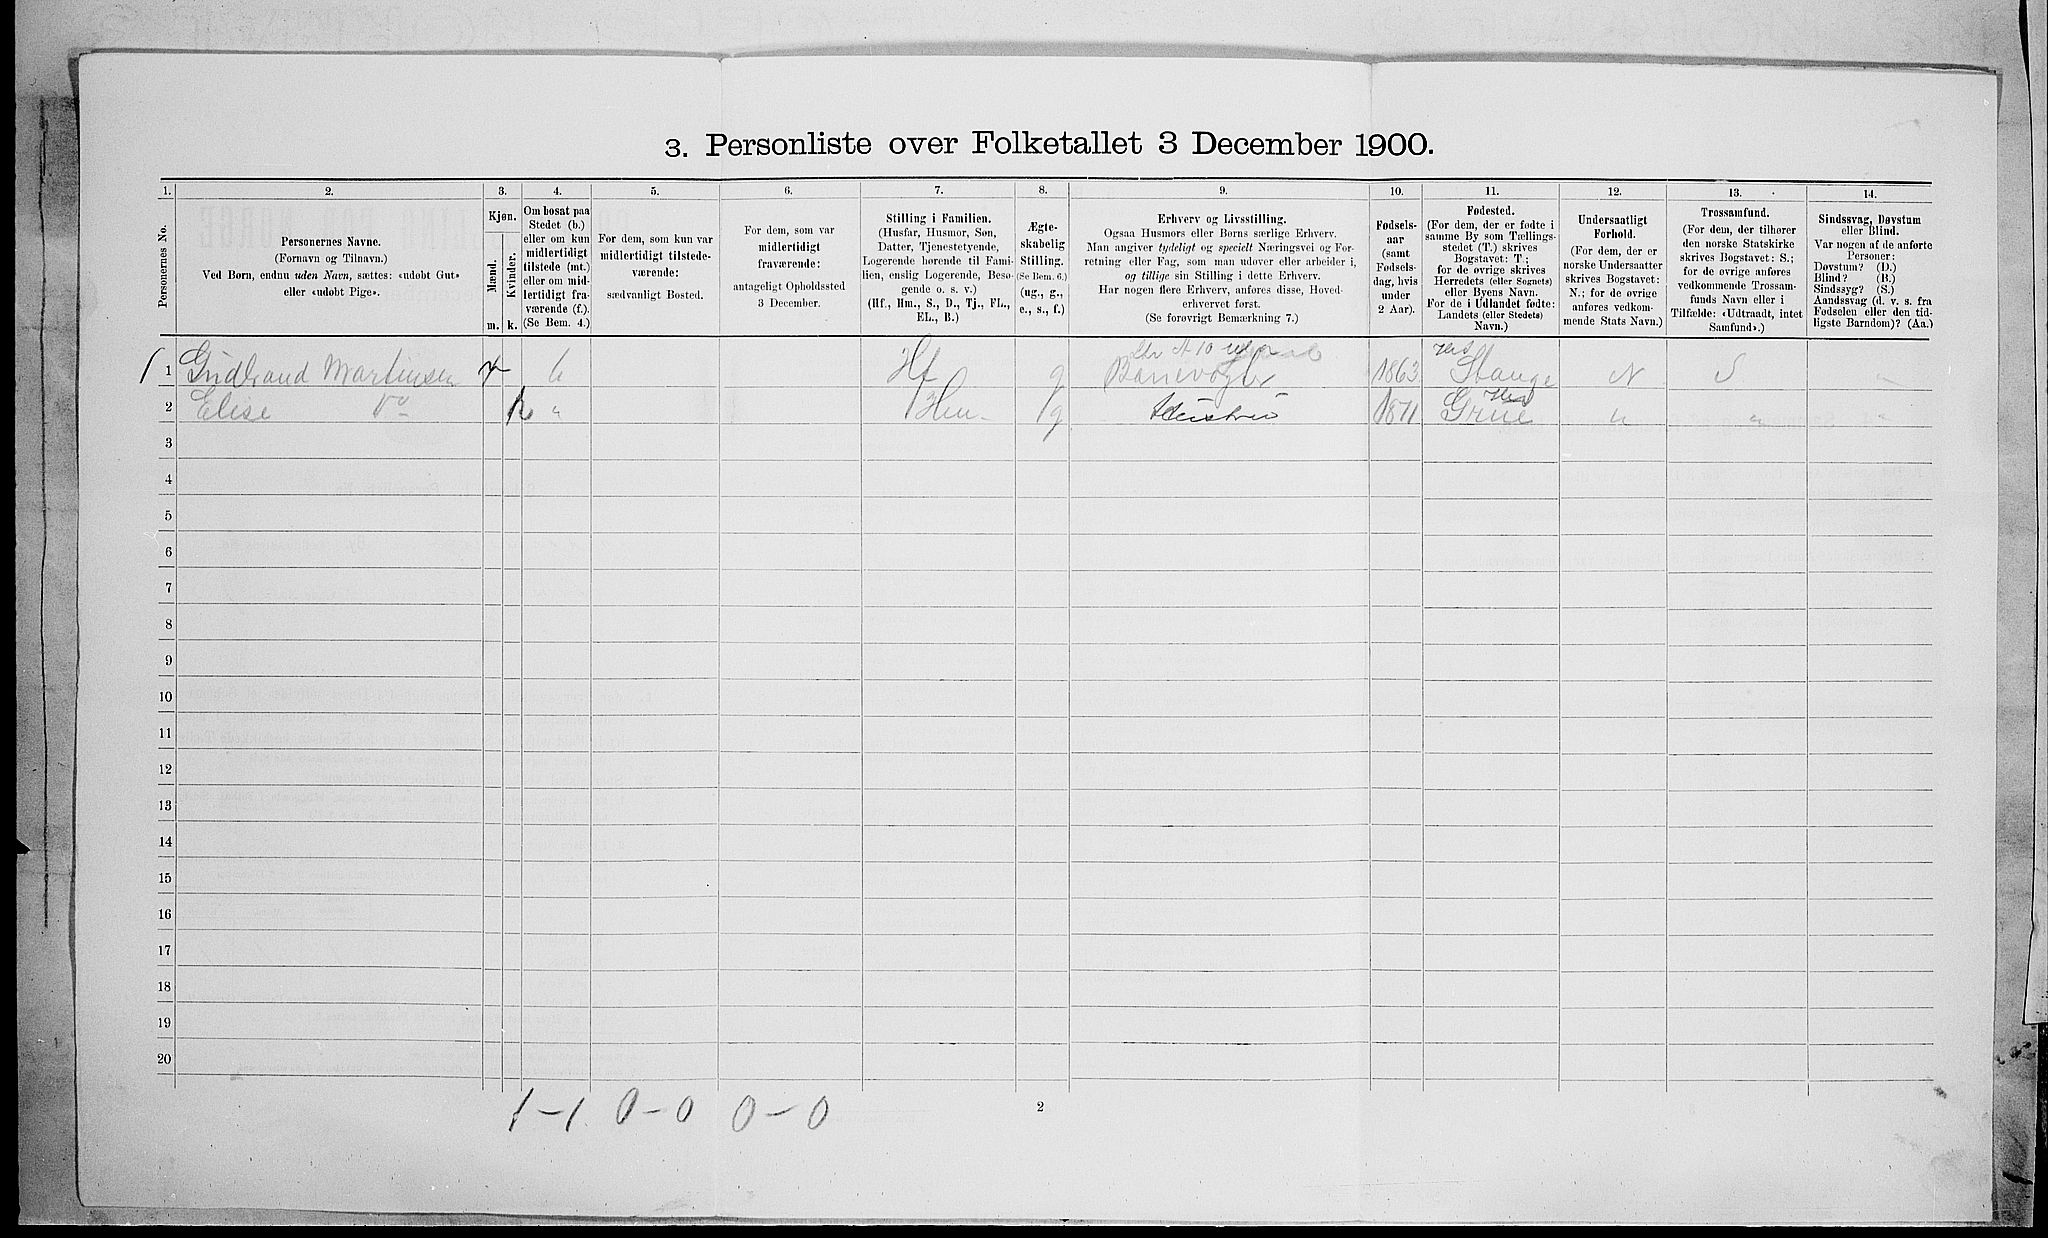 3. Personliste over Folketallet 3 December 1900.
1. 2. 3. 4. 5. 6. 7. 8. 9. 10. 11. 12. 13. 14.
Personernes No.
Personernes Navne.
(Fornavn og Tilnavn.)
Ved Børn, endnu uden Navn, sættes: «udøbt Gut»
eller «udøbt Pige».
Kjøn.
Mænd.
Kvinder.
m. k.
Om bosat paa
Stedet (b.)
eller om kun
midlertidigt
tilstede (mt.)
eller om mid-
lertidigt fra-
værende (f.).
(Se Bem. 4.)
For dem, som kun var
midlertidigt tilstede-
værende:
sædvanligt Bosted.
For dem, som var
midlertidigt
fraværende:
antageligt Opholdssted
3 December.
Stilling i Familien.
(Husfar, Husmor, Søn,
Datter, Tjenestetyende,
Logerende hørende til Fami-
lien, enslig Logerende, Besø-
gende o. s. v.)
(Hf., Hm., S., D., Tj., FL.,
EL., B.)
Ægte-
skabelig
Stilling.
(Se Bem. 6.)
(ug., g.,
e., s., f.)
Erhverv og Livsstilling.
Ogsaa Husmors eller Børns særlige Erhverv.
Man angiver tydeligt og specielt Næringsvei og For-
retning eller Fag, som man udøver eller arbeider i,
og tillige sin Stilling i dette Erhverv.
Har nogen flere Erhverv, anføres disse, Hoved-
erhvervet først.
(Se forøvrigt Bemærkning 7.)
Fødsels-
aar
(samt
Fødsels-
dag, hvis
under
2 Aar).
Fødested.
(For dem, der er fødte i
samme By som Tællings-
stedet (T.) skrives
Bogstavet: T.;
for de øvrige skrives
Herredets (eller Sognets)
eller Byens Navn.
For de i Udlandet fødte:
Landets (eller Stedets)
Navn.)
Undersaatligt
Forhold.
(For dem, der er
norske Undersaatter
skrives Bogstavet:
N.; for de øvrige
anføres vedkom-
mende Stats Navn.)
Trossamfund.
(For dem, der tilhører
den norske Statskirke
skrives Bogstavet: S.;
for de øvrige anføres
vedkommende Trossam-
funds Navn eller i
Tilfælde: «Udtraadt, intet
Samfund».)
Sindssvag, Døvstum
eller Blind.
Var nogen af de anførte
Personer:
Døvstum? (D.)
Blind? (B.)
Sindssyg? (S.)
Aandssvag (d. v. s. fra
Fødselen eller den tid-
ligste Barndom)? (Aa.)
1 Gudbrand Martinsen b Hf g Banevogter 1863 Hed Stange N S
2 Elise Do k " Hm g Hustru 1871 Hed Grue " " "
3
4
5
6
7
8
9
10
11
12
13
14
15
16
17
18
19
20
1-1 0-0 0-0
2